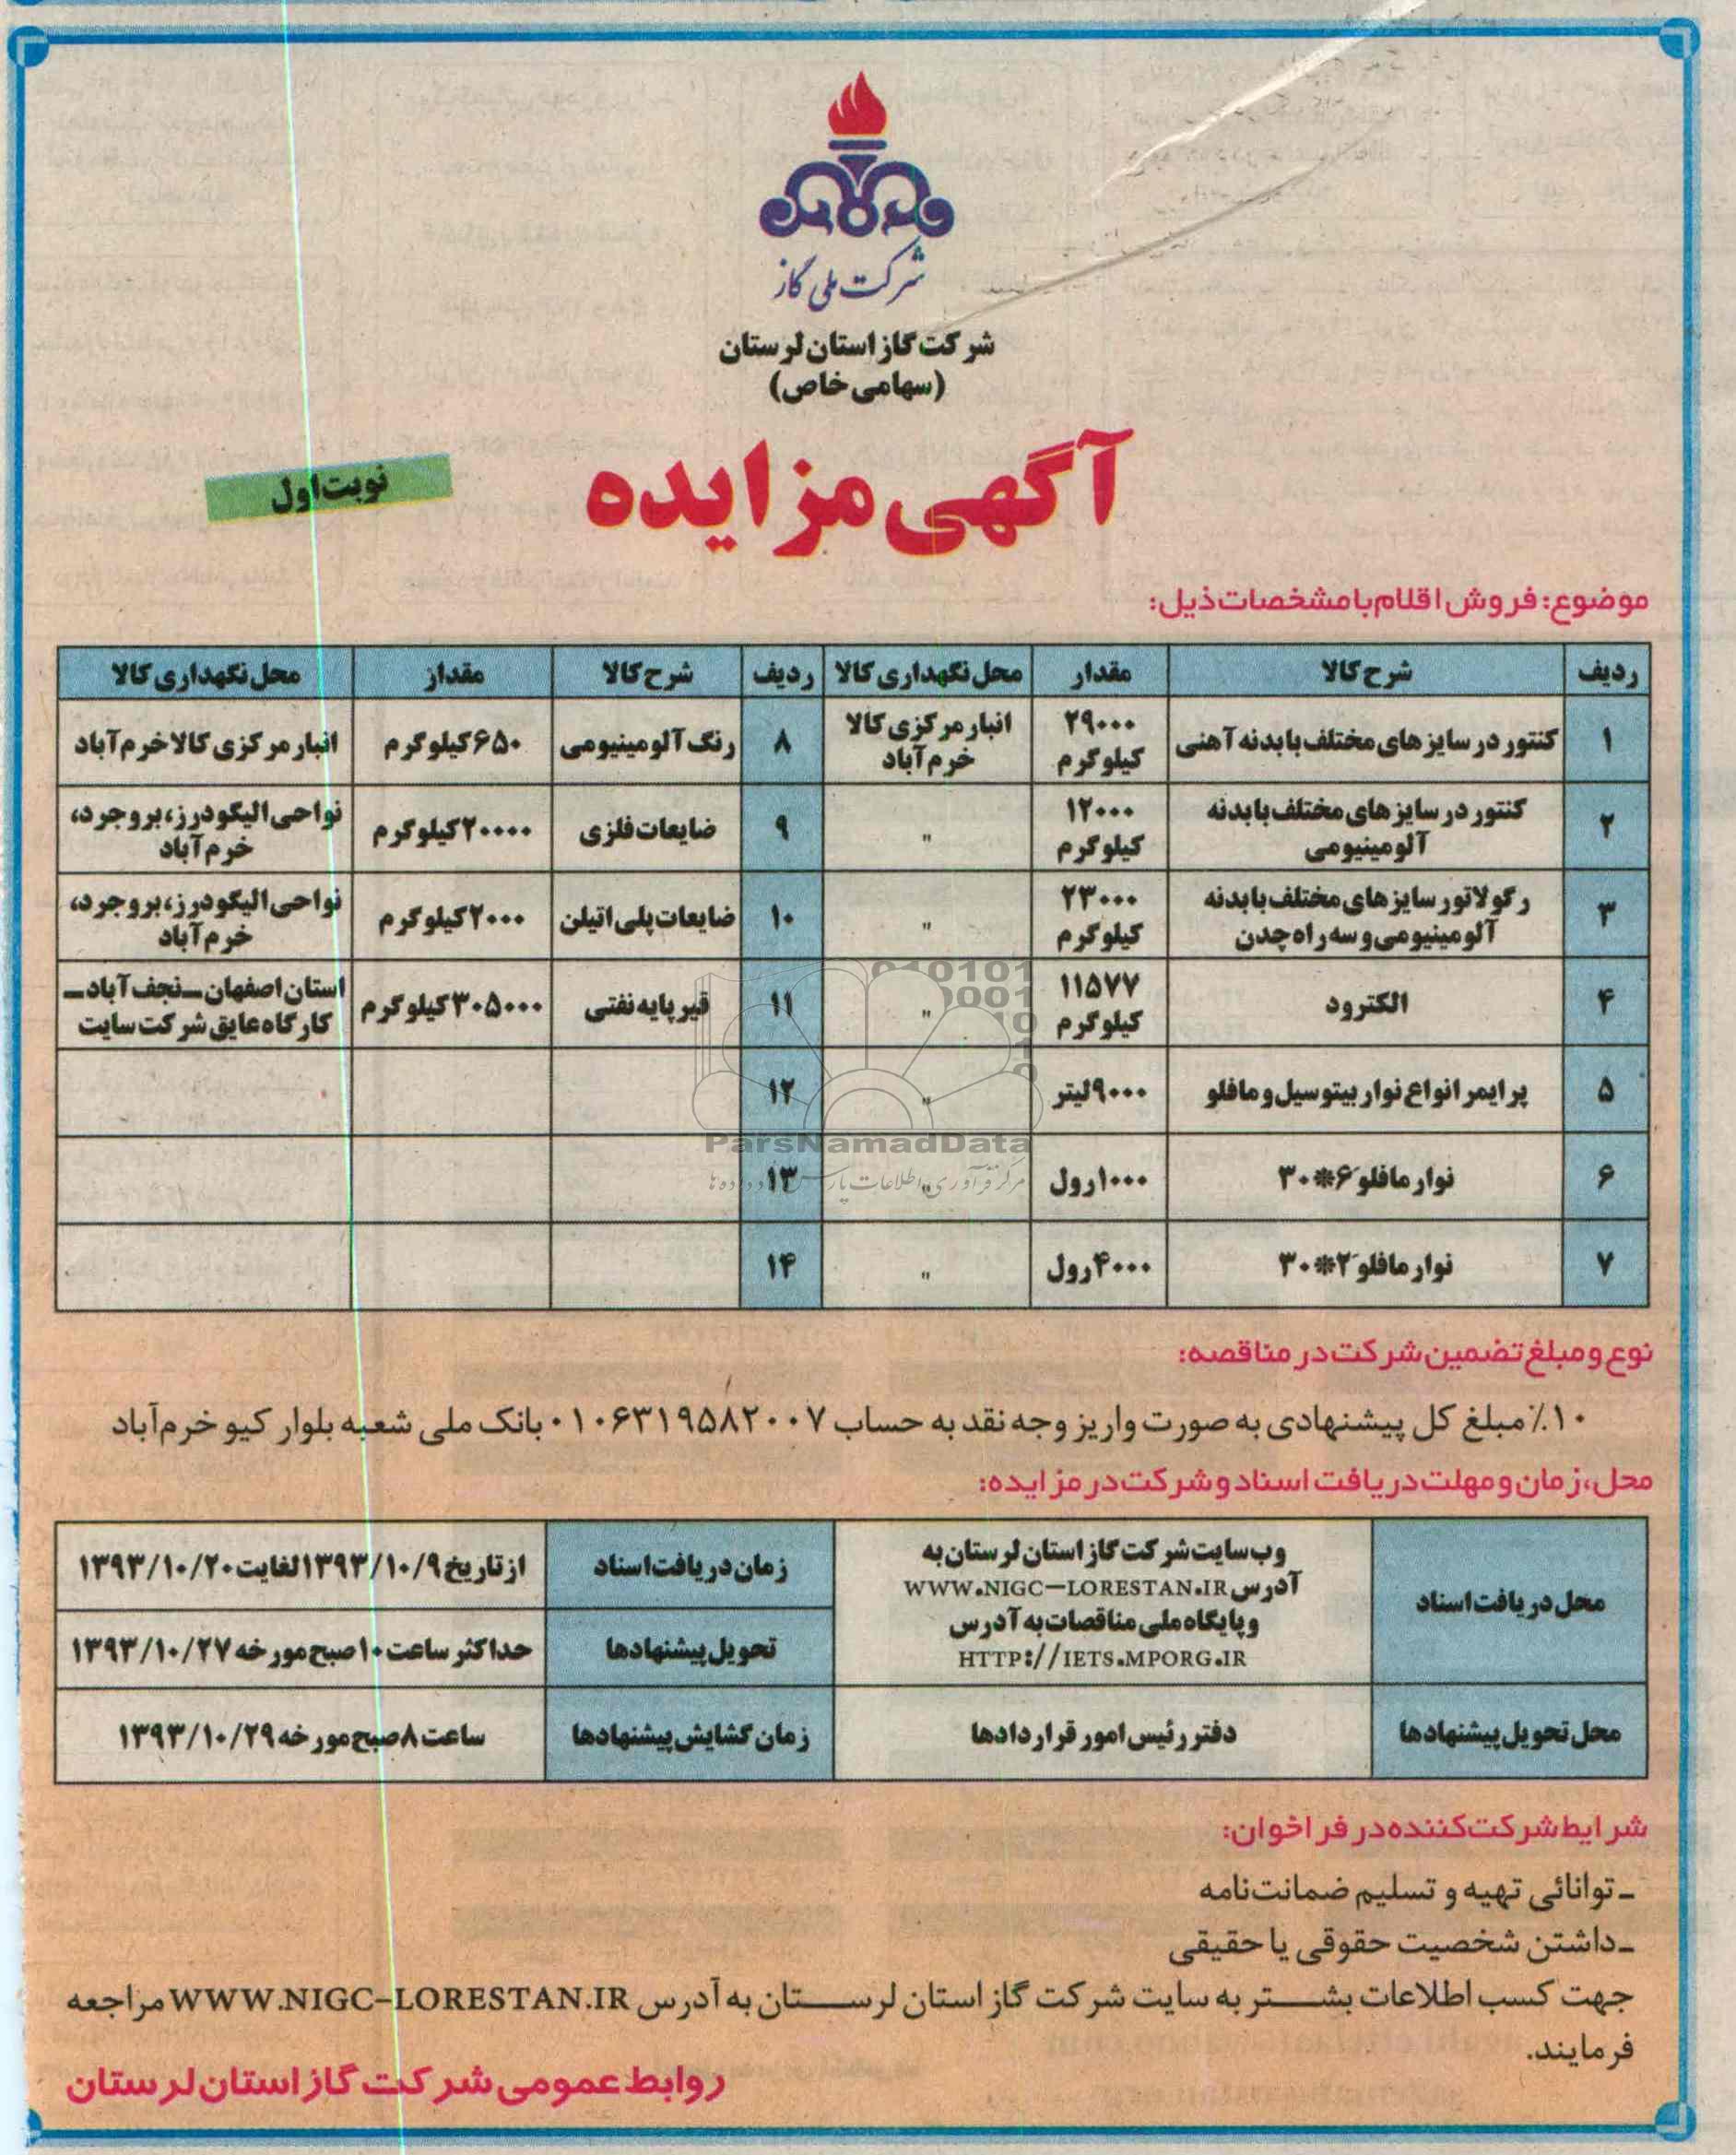 شرکت ملی گاز
شرکت گاز استان لرستان
(سهامی خاص)
آگهی مزایده
نوبت اول
موضوع: فروش اقلام با مشخصات ذیل:
ردیف شرح کالا مقدار محل نگهداری کالا ردیف شرح کالا مقدار محل نگهداری کالا
۱ کنتور در سایزهای مختلف با بدنه آهنی ۲۹۰۰۰ کیلوگرم انبار مرکزی کالا خرم‌آباد ۸ رنگ آلومینیومی ۶۵۰ کیلوگرم انبار مرکزی کالا خرم‌آباد
۲ کنتور در سایزهای مختلف با بدنه آلومینیومی ۱۲۰۰۰ کیلوگرم " ۹ ضایعات فلزی ۲۰۰۰۰ کیلوگرم نواحی الیگودرز، بروجرد، خرم‌آباد
۳ رگولاتور سایزهای مختلف با بدنه آلومینیومی و سه راه چدن ۲۳۰۰۰ کیلوگرم " ۱۰ ضایعات پلی اتیلن ۲۰۰۰ کیلوگرم نواحی الیگودرز، بروجرد، خرم‌آباد
۴ الکترود ۱۱۵۷۷ کیلوگرم " ۱۱ قیر پایه نفتی ۳۰۵۰۰۰ کیلوگرم استان اصفهان ـ نجف آباد ـ کارگاه عایق شرکت سایت
۵ پرایمر انواع نوار بیتوسیل و مافلو ۹۰۰۰ لیتر " ۱۲
۶ نوار مافلو ۶*۳۰ ۱۰۰۰ رول " ۱۳
۷ نوار مافلو ۲*۳۰ ۴۰۰۰ رول " ۱۴
ParsNamadData
مرکز فرآوری اطلاعات پارس نماد داده ها
نوع و مبلغ تضمین شرکت در مناقصه:
۱۰٪ مبلغ کل پیشنهادی به صورت واریز وجه نقد به حساب ۰۱۰۶۳۱۹۵۸۲۰۰۷ بانک ملی شعبه بلوار کیو خرم‌آباد
محل، زمان و مهلت دریافت اسناد و شرکت در مزایده:
محل دریافت اسناد
وب سایت شرکت گاز استان لرستان به
آدرس WWW.NIGC-LORESTAN.IR
و پایگاه ملی مناقصات به آدرس
HTTP://IETS.MPORG.IR
زمان دریافت اسناد از تاریخ ۱۳۹۳/۱۰/۹ لغایت ۱۳۹۳/۱۰/۲۰
تحویل پیشنهادها حداکثر ساعت ۱۰ صبح مورخه ۱۳۹۳/۱۰/۲۷
محل تحویل پیشنهادها دفتر رئیس امور قراردادها زمان گشایش پیشنهادها ساعت ۸ صبح مورخه ۱۳۹۳/۱۰/۲۹
شرایط شرکت‌کننده در فراخوان:
ـ توانائی تهیه و تسلیم ضمانت‌نامه
ـ داشتن شخصیت حقوقی یا حقیقی
جهت کسب اطلاعات بشتر به سایت شرکت گاز استان لرستان به آدرس WWW.NIGC-LORESTAN.IR مراجعه
فرمایند.
روابط عمومی شرکت گاز استان لرستان